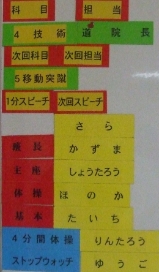 科目 担当
4 技術 道院長
次回科目 次回担当
5 移動突蹴
1分スピーチ 次回スピーチ
さら
かずま
主座 しょうたろう
体操 ほのか
基本 たいち
4分間体操 りんたろう
ストップウォッチ ゆうご